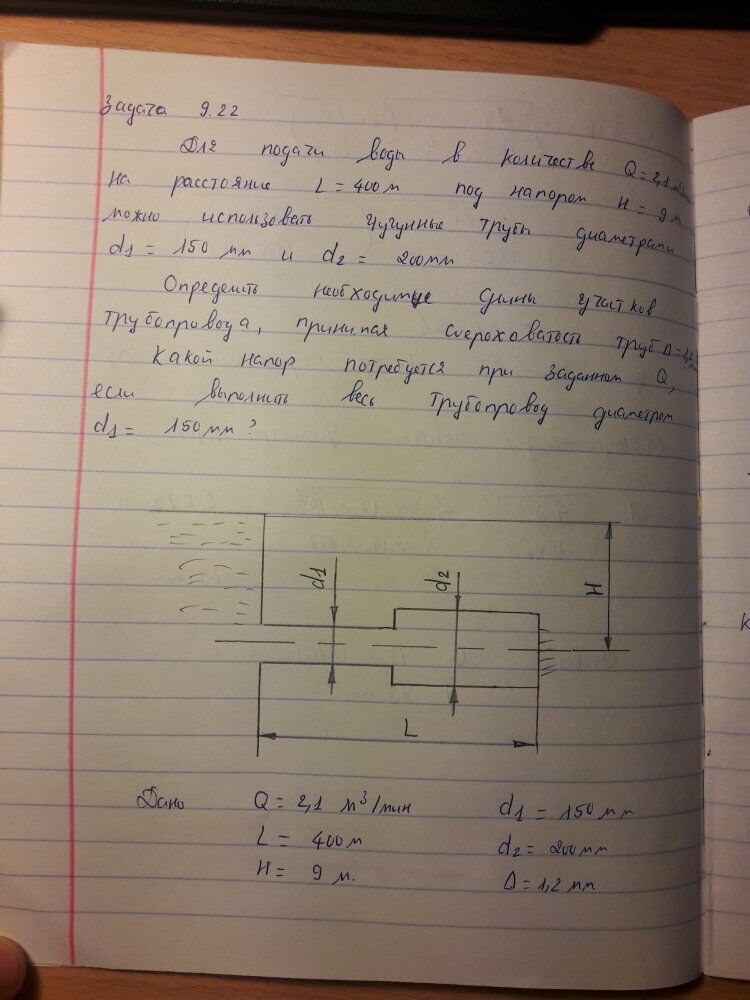 Задача 9.22
Для подачи воды в количестве Q = 2,1 м³/мин
на расстояние L = 400 м под напором H = 9 м
можно использовать чугунные трубы диаметрами
d1 = 150 мм и d2 = 200мм
Определить необходимые длины участков
трубопровода, принимая шероховатость труб Δ = 1,2 мм
Какой напор потребуется при заданном Q,
если выполнить весь трубопровод диаметром
d1 = 150 мм ?
d1
d2
H
L
Дано Q = 2,1 м³/мин d1 = 150 мм
L = 400м d2 = 200мм
H = 9 м. Δ = 1,2 мм